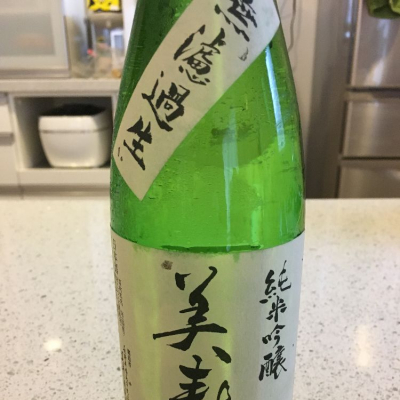 無濾過生
純米吟醸
美寿